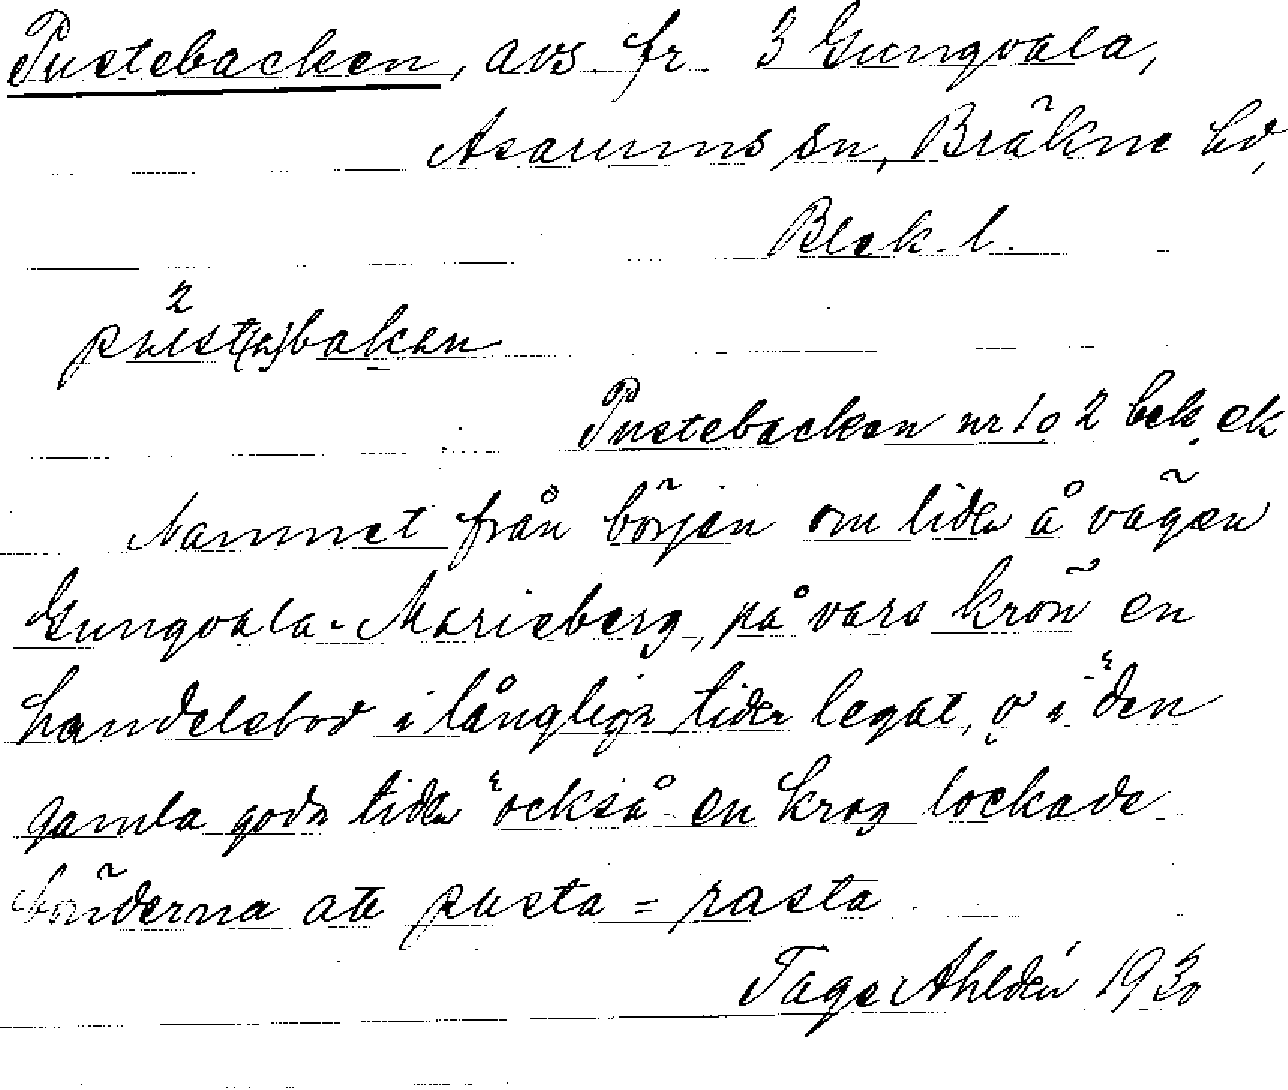 Pustebacken, avs. fr. 3 Gungvala,
Asarums sn, Bräkne hd,
Blek. l.
2
pust(ə)bakən
Pustebacken nr 1 o 2 bek. ek
Namnet från början om liden å vägen
Gungvala-Marieberg, på vars krön en
handelsbod i långliga tider legat, o i "den
gamla goda tiden" också en krog lockade
bönderna att pusta = rasta
Tage Ahldén 1930